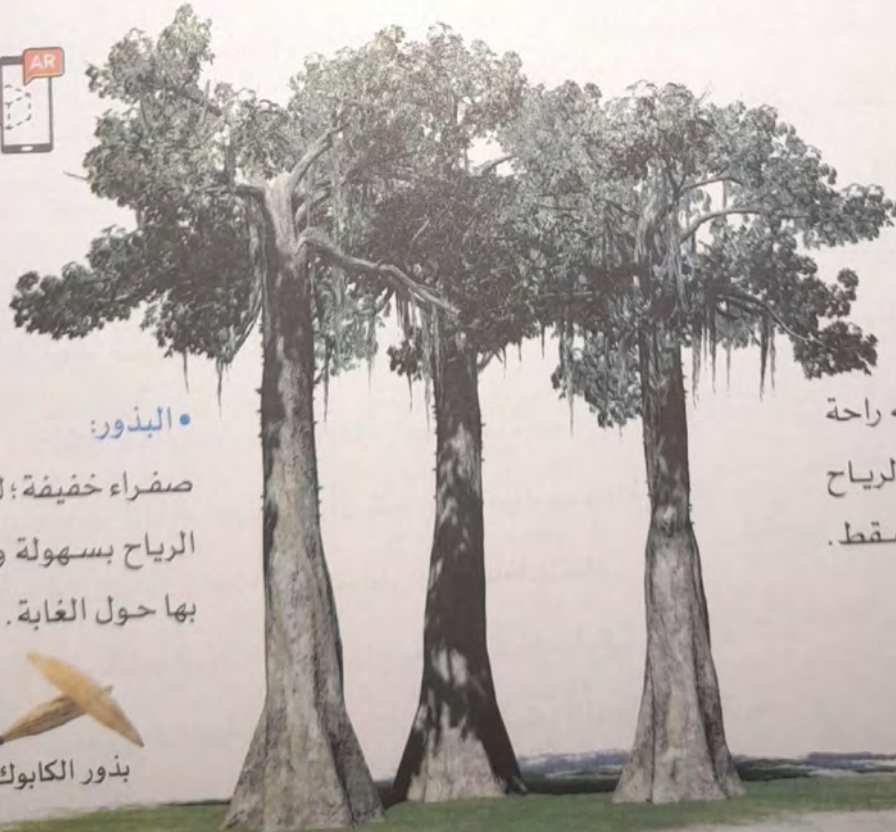 AR
راحة
الرياح
سقط.
• البذور:
صفراء خفيفة؛
الرياح بسهولة و
بها حول الغابة.
بذور الكابوك